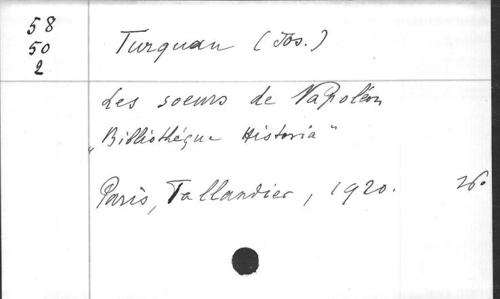 58
50
2
Turquan (Jos.)
Les soeurs de Napoléon
„Bibliothéque Historia"
Paris, Tallandier, 1920. 26.